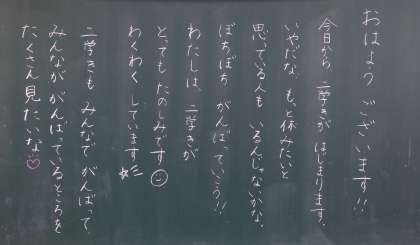 おはよう ございます!!
今日から 二学きが はじまります。
いやだな、もっと休みたいと
思っている人も いるんじゃないかな。
ぼちぼち がんばっていこう!!
わたしは、二学きが
とってもたのしみです
わくわく しています
二学きも みんなで がんばって、
みんなが がんばっているところを
たくさん見たいな♡